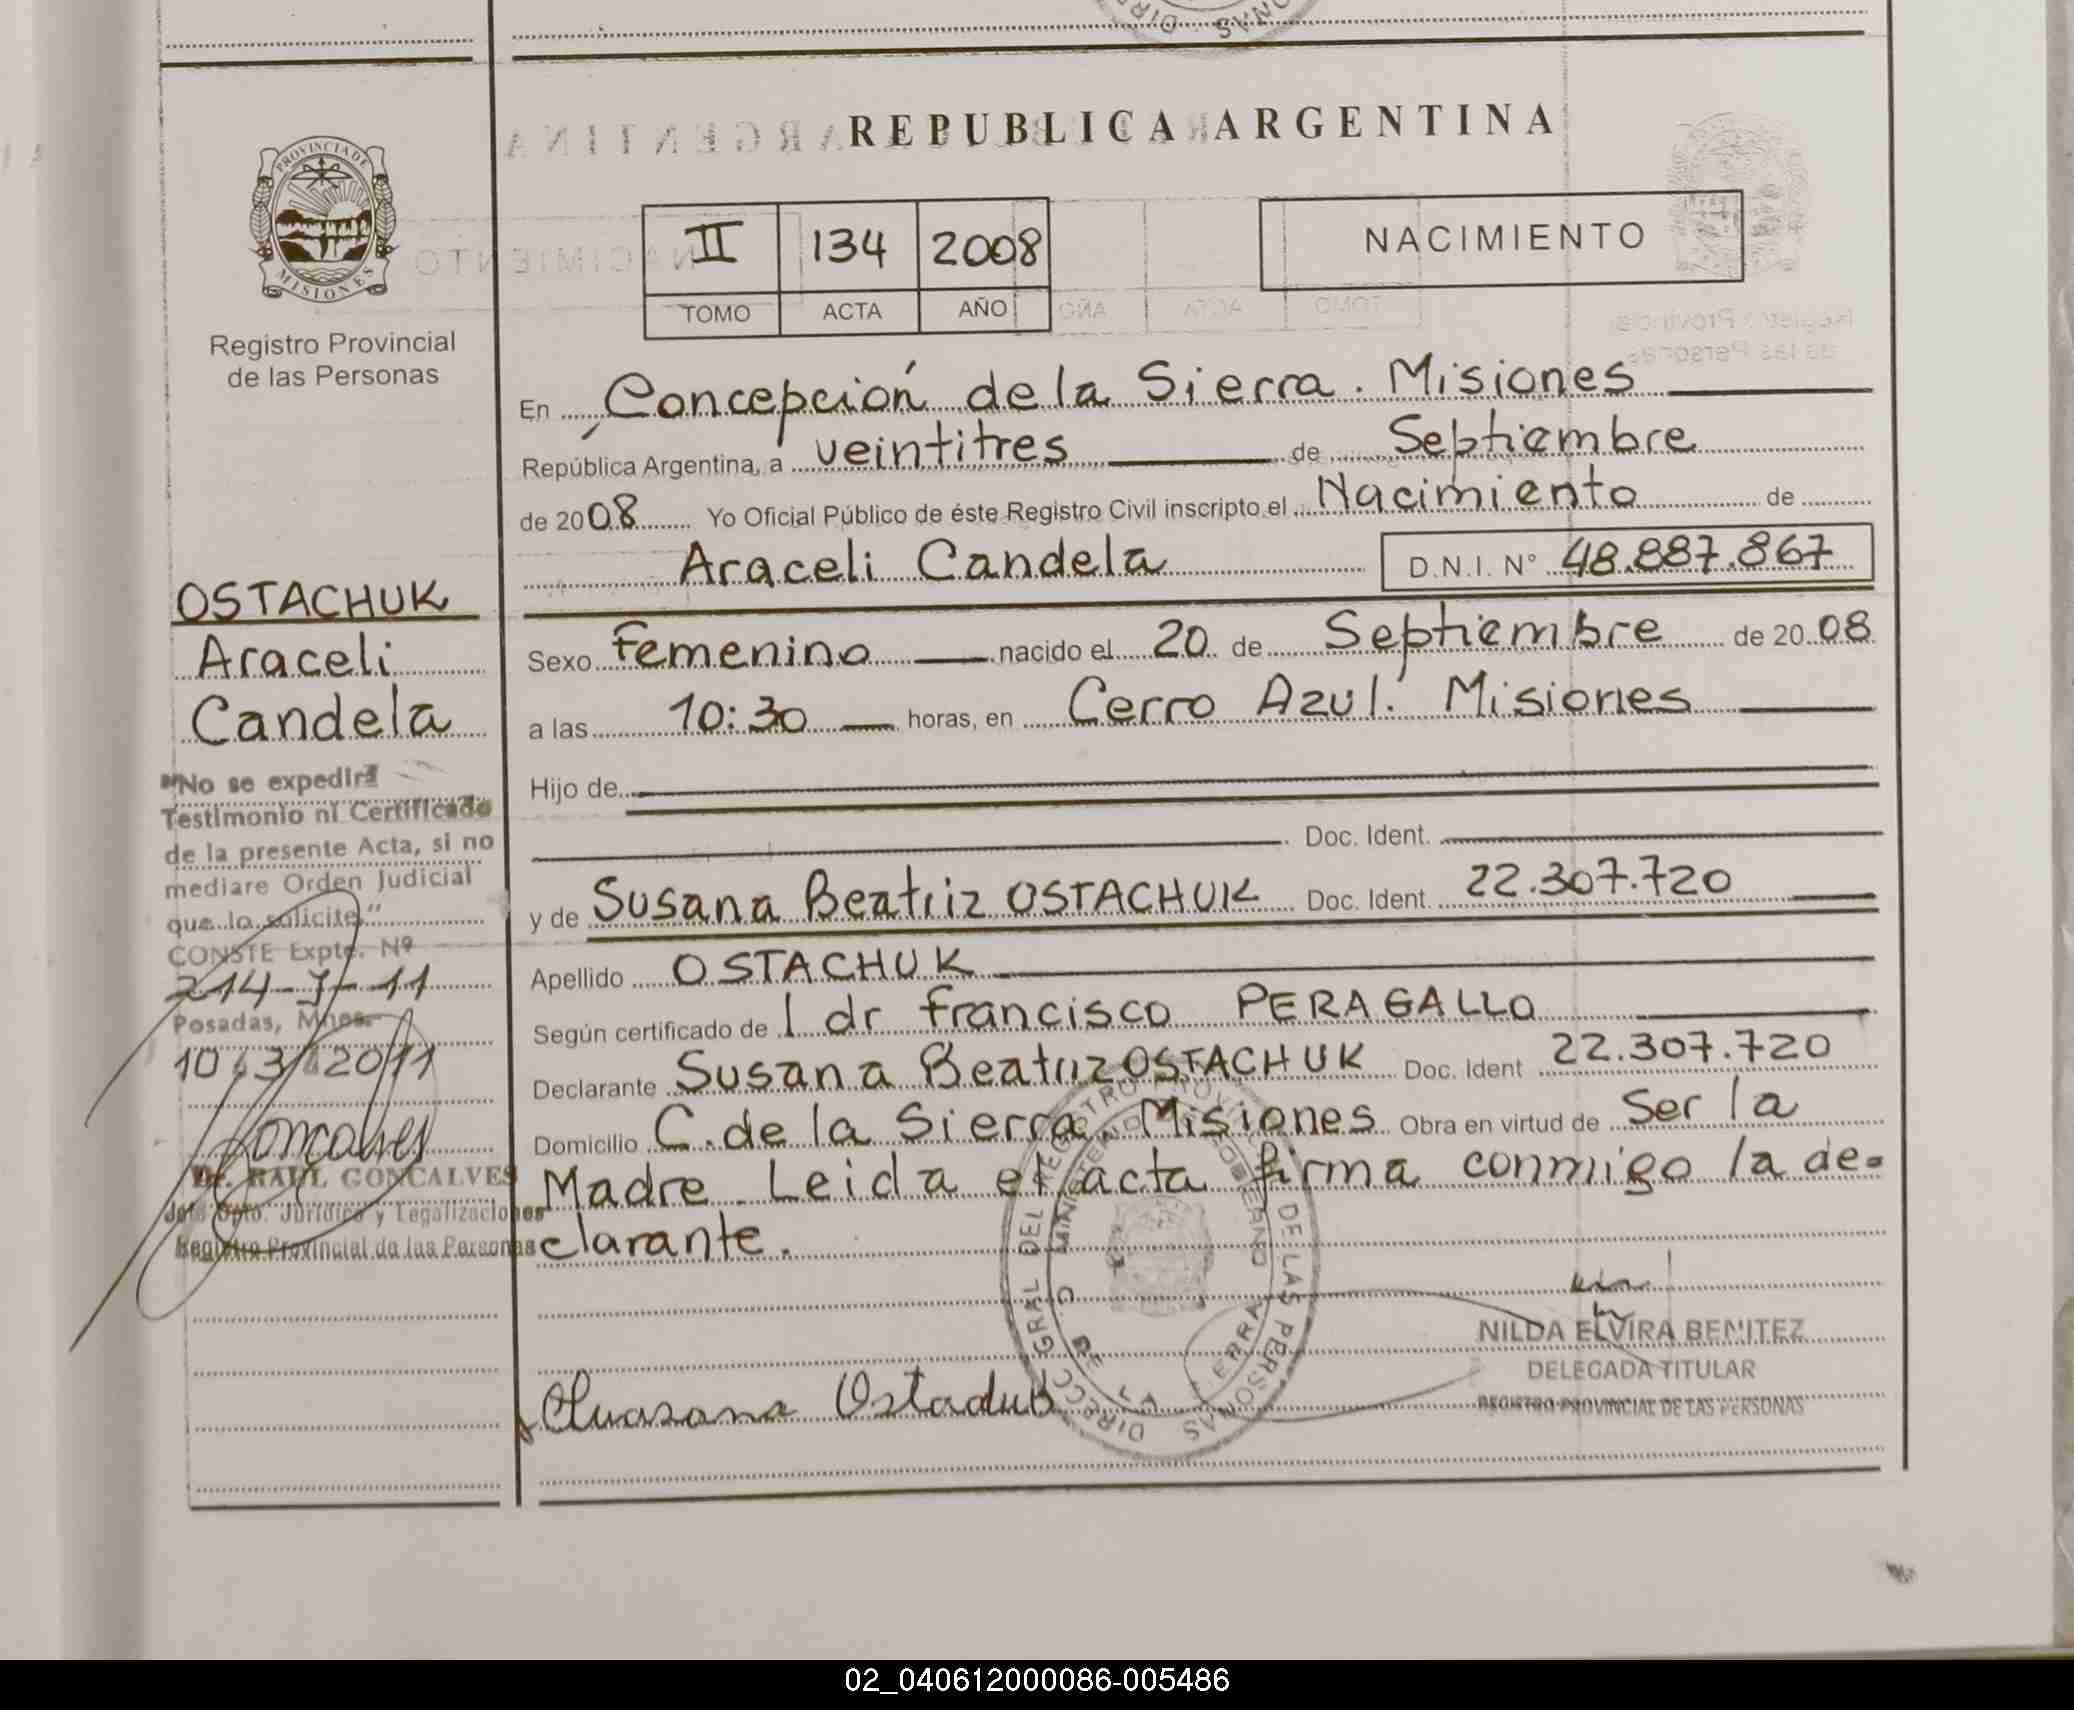 REPUBLICA ARGENTINA
PROVINCIA DE
MISIONES
Registro Provincial
de las Personas
II 134 2008
TOMO ACTA AÑO
NACIMIENTO
En Concepción de la Sierra. Misiones
República Argentina, a veintitres de Septiembre
de 2008 Yo Oficial Público de éste Registro Civil inscripto el Nacimiento de
Araceli Candela D.N.I. N° 48.887.867
Sexo Femenino nacido el 20 de Septiembre de 2008
a las 10:30 horas, en Cerro Azul. Misiones
Hijo de
Doc. Ident.
y de Susana Beatriz OSTACHUK Doc. Ident. 22.307.720
Apellido OSTACHUK
Según certificado de dr Francisco PERAGALLO
Declarante Susana Beatriz OSTACHUK Doc. Ident 22.307.720
Domicilio C. de la Sierra Misiones Obra en virtud de Ser la
Madre. Leida el acta firma conmigo la de-
clarante.
OSTACHUK
Araceli
Candela
"No se expedirá
Testimonio ni Certificado
de la presente Acta, si no
mediare Orden Judicial
que lo solicite."
CONSTE Expte. Nº
214-J-11
Posadas, Mnes.
10 3 2011
Dr. RAUL GONCALVES
Jefe Dpto. Jurídico y Legalizaciones
Registro Provincial de las Personas
DIRECC GRAL DEL REGISTRO PROV DE LAS PERSONAS
NILDA ELVIRA BENITEZ
DELEGADA TITULAR
REGISTRO PROVINCIAL DE LAS PERSONAS
02_040612000086-005486